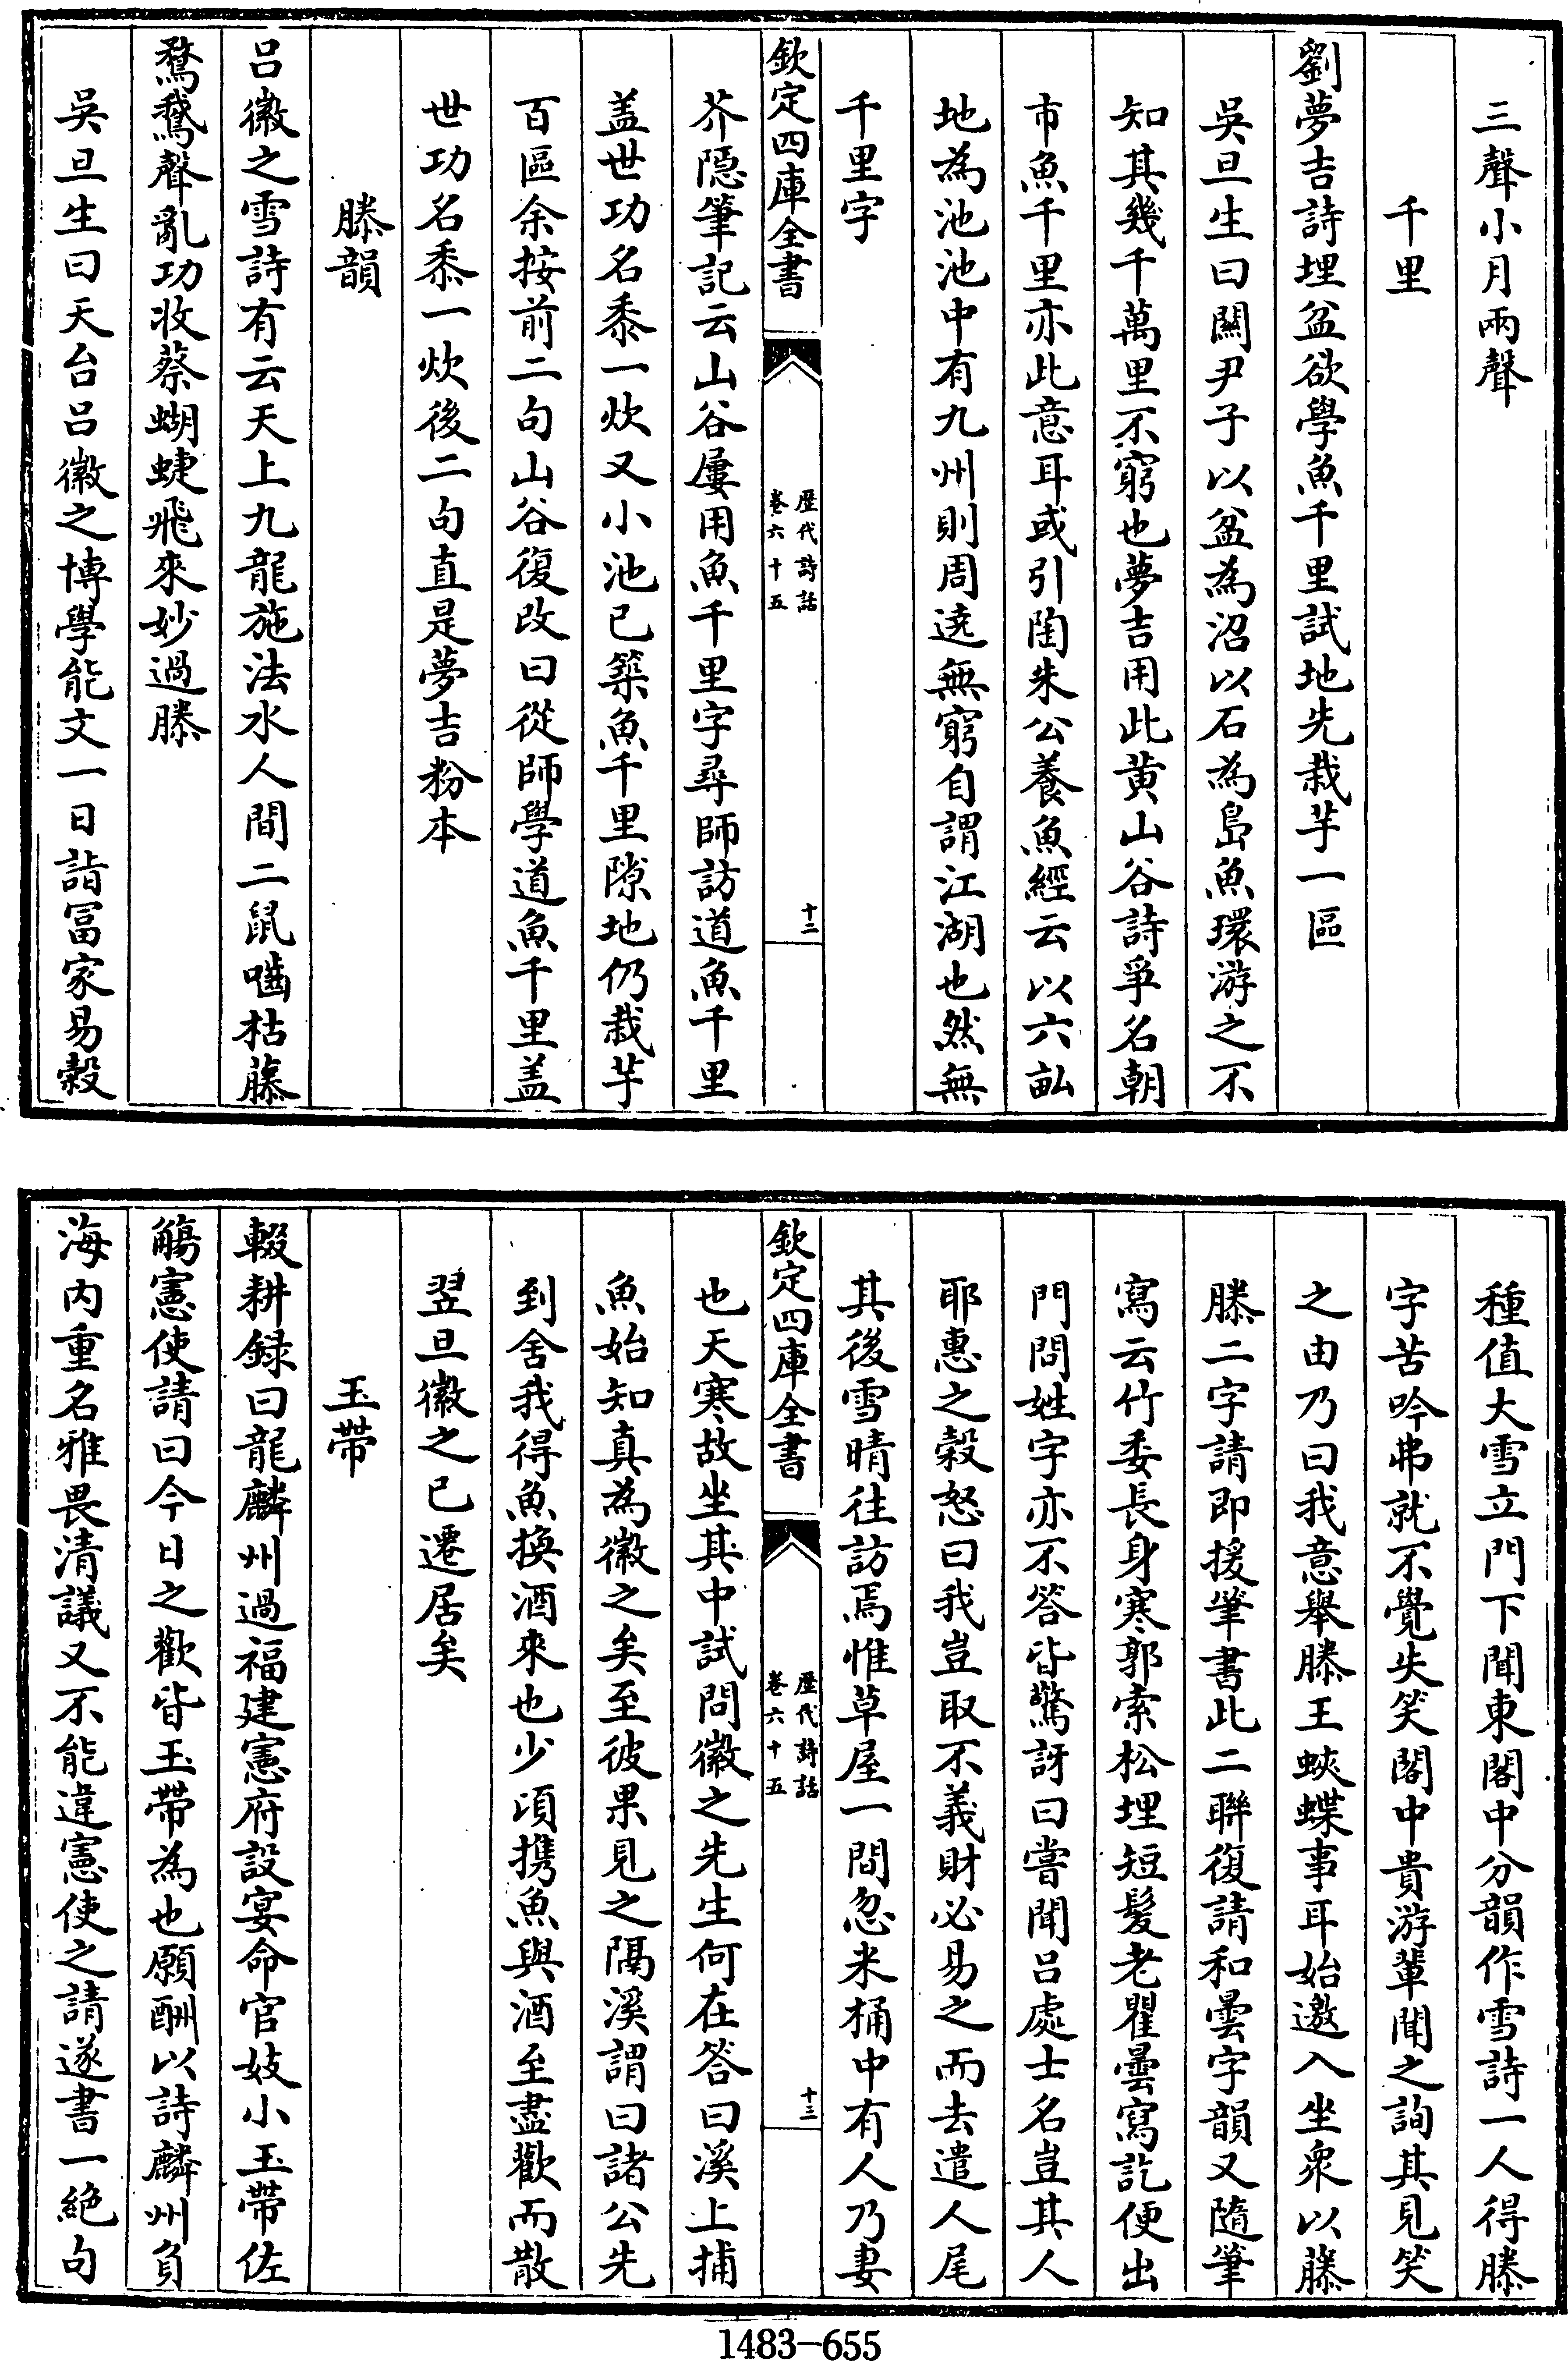 三聲小月兩聲
千里
劉夢吉詩埋盆欲學魚千里試地先栽芋一區
吳旦生曰闗尹子以盆為沼以石為島魚環游之不
知其幾千萬里不窮也夢吉用此黄山谷詩爭名朝
市魚千里亦此意耳或引陶朱公養魚經云以六畝
地為池池中有九州則周遶無窮自謂江湖也然無
千里字
欽定四庫全書
歴代詩話
卷六十五
十二
芥隱筆記云山谷屢用魚千里字尋師訪道魚千里
盖世功名黍一炊又小池已築魚千里隙地仍栽芋
百區余按前二句山谷復改曰從師學道魚千里盖
世功名黍一炊後二句直是夢吉粉本
滕韻
吕徽之雪詩有云天上九龍施法水人間二鼠嚙枯藤
鶩鵞聲亂功收蔡蝴蜨飛來妙過滕
吳旦生曰天台吕徽之博學能文一日詣冨家易穀
種值大雪立門下聞東閣中分韻作雪詩一人得滕
字苦吟弗就不覺失笑閣中貴游輩聞之詢其見笑
之由乃曰我意舉滕王蛺蝶事耳始邀入坐衆以藤
滕二字請即援筆書此二聯復請和曇字韻又隨筆
寫云竹委長身寒郭索松埋短髪老瞿曇寫訖便出
門問姓字亦不答皆驚訝曰嘗聞吕處士名豈其人
耶惠之穀怒曰我豈取不義財必易之而去遣人尾
其後雪晴往訪焉惟草屋一間忽米桶中有人乃妻
欽定四庫全書
歴代詩話
卷六十五
十三
也天寒故坐其中試問徽之先生何在答曰溪上捕
魚始知真為徽之矣至彼果見之隔溪謂曰諸公先
到舍我得魚換酒來也少頃携魚與酒至盡歡而散
翌旦徽之已遷居矣
玉帶
輟耕録曰龍麟州過福建憲府設宴命官妓小玉帶佐
觴憲使請曰今日之歡皆玉帶為也願酬以詩麟州負
海内重名雅畏清議又不能違憲使之請遂書一絶句
1483-655